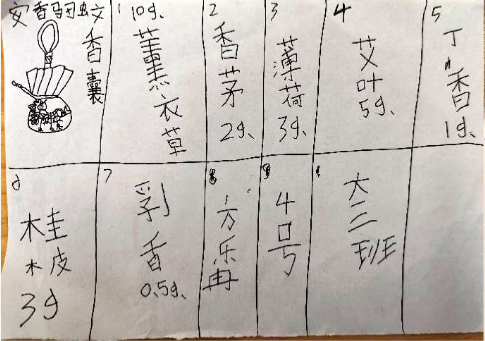 安香驱蚊
香囊
1 10g、
薰衣草
2
香茅
2g、
3
薄荷
3g、
4
艾叶
5g、
5
丁香
1g、
6
桂
木皮
3g
7
乳香
0.5g、
8
方乐冉
9
4号
大三班